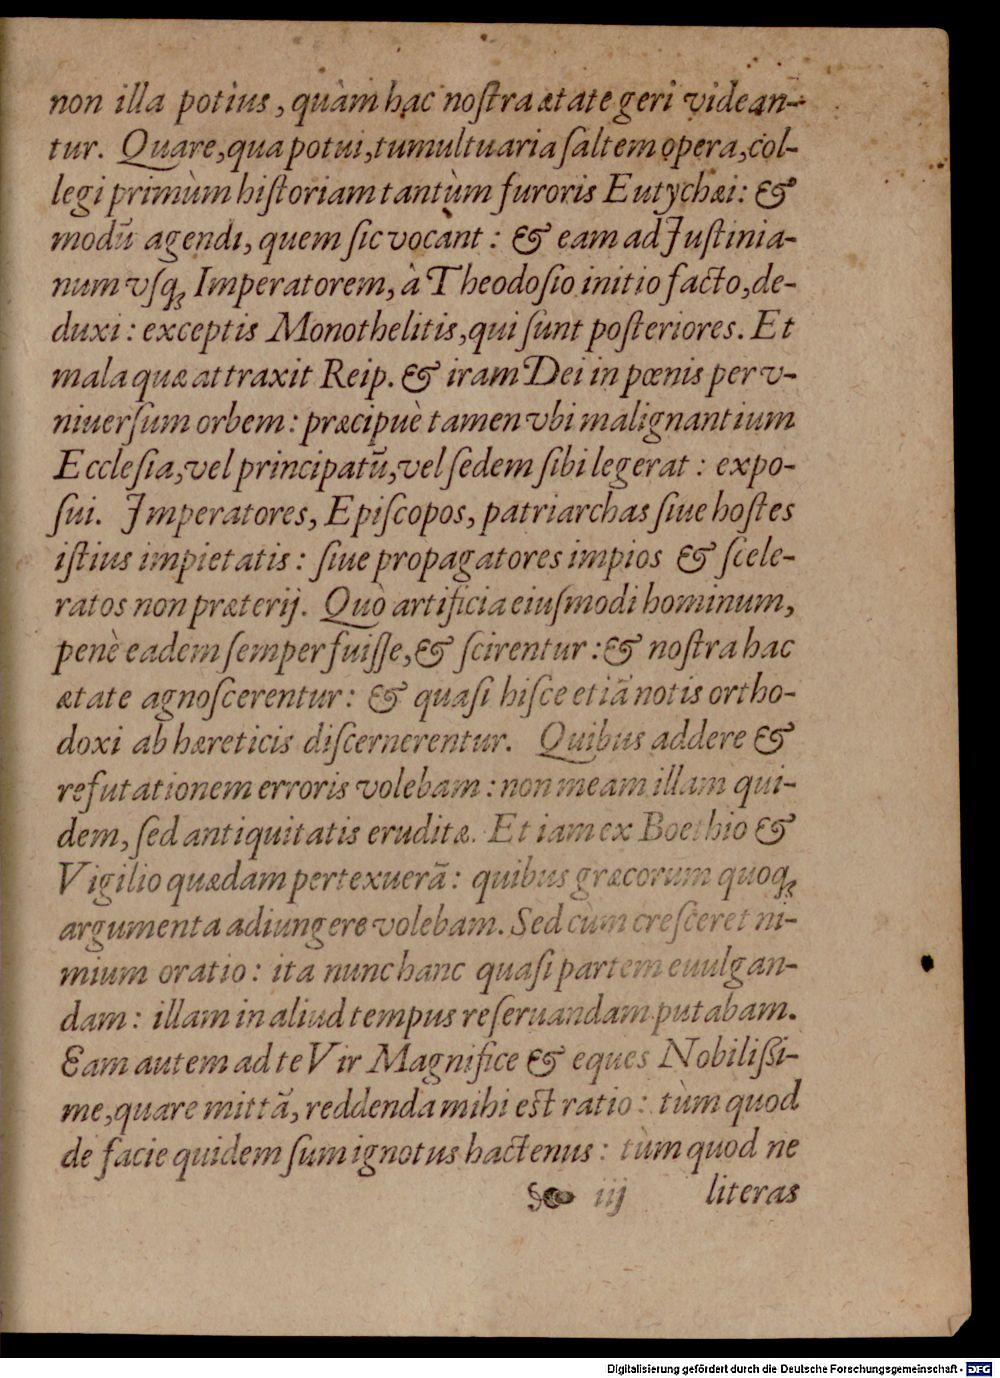 non illa potius, quàm hac noſtra ætate geri videan-
tur. Quare, qua potui, tumultuaria ſaltem opera, col-
legi primùm hiſtoriam tantùm furoris Eutychæi: &
modū agendi, quem ſic vocant: & eam ad Juſtinia-
num vſq; Imperatorem, à Theodoſio initio facto, de-
duxi: exceptis Monothelitis, qui ſunt poſteriores. Et
mala quæ attraxit Reip. & iram Dei in pœnis per v-
niuerſum orbem: præcipuè tamen vbi malignantium
Eccleſia, vel principatū, vel ſedem ſibi legerat: expo-
ſui. Imperatores, Epiſcopos, patriarchas ſiue hoſtes
iſtius impietatis: ſiue propagatores impios & ſcele-
ratos non præterij. Quò artificia eiuſmodi hominum,
penè eadem ſemper fuiſſe, & ſcirentur: & noſtra hac
ætate agnoſcerentur: & quaſi hiſce etiā notis ortho-
doxi ab hæreticis diſcernerentur. Quibus addere &
refutationem erroris volebam: non meam illam qui-
dem, ſed antiquitatis eruditæ. Et iam ex Boethio &
Vigilio quædam pertexuerā: quibus græcorum quoq;
argumenta adiungere volebam. Sed cùm creſceret ni-
mium oratio: ita nunc hanc quaſi partem euulgan-
dam: illam in aliud tempus reſeruandam putabam.
Eam autem ad te Vir Magnifice & eques Nobiliſſi-
me, quare mittā, reddenda mihi eſt ratio: tùm quod
de facie quidem ſum ignotus hactenus: tùm quod ne
iij literas
Digitalisierung gefördert durch die Deutsche Forschungsgemeinschaft - DFG